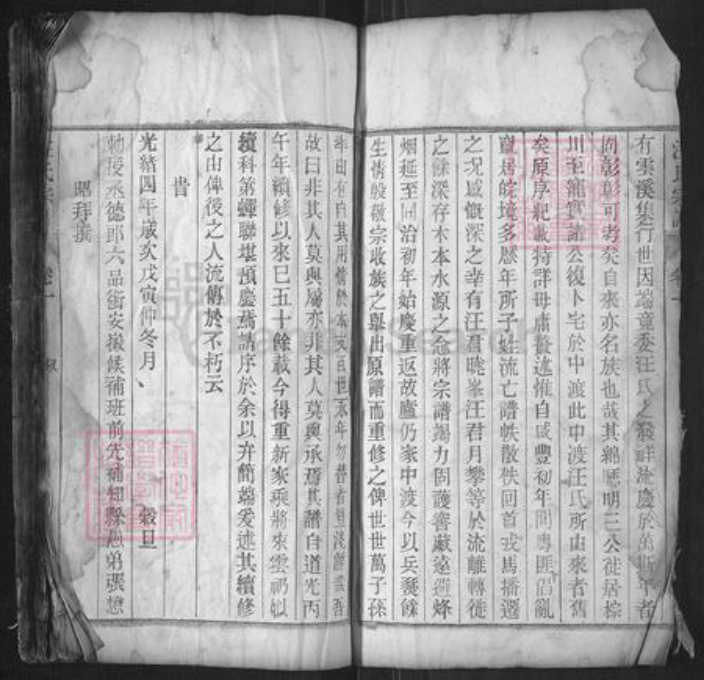 有雲溪集行世因端竟委汪氏之發祥流慶於萬斯年者
固彰彰可考矣自來亦名族也哉其錦愿明三公徙居棕
川至龍實諸公復卜宅於中渡此中渡汪氏所由來者舊
矣原序紀載特詳毋庸贅述惟自咸豐初年間粵匪倡亂
竄居皖境多歷年所子姓流亡譜帙散佚回首戎馬播遷
之況感慨深之幸有汪君曉峯汪君月攀等於流離轉徙
之餘深存木本水源之念將宗譜竭力固護窖藏遠避烽
烟延至同治初年始慶重返故廬仍家中渡今以兵燹餘
生情殷報宗收族之舉出原譜而重修之俾世世萬子孫
知由有自其用情於本支百世
故曰非其人莫與屬亦非其人莫與承焉其譜自道光丙
午年續修以來巳五十餘載今得重新家乘將來雲礽似
續科第蟬聯堪預慶焉請序於余以弁簡端爰述其續修
之由俾後之人流傳於不朽云
旹
光緒四年歲次戊寅仲冬月 穀旦
勅授承德郎六品銜安徽候補班前先補知縣愚弟張懋
昭拜撰
汪氏宗譜 卷一